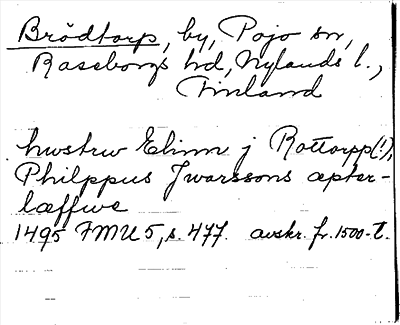 Brödtorp, by, Pojo sn,
Raseborgs hd, Nylands l.,
Finland
hwstrw Elinn j Rottorpp (!),
Philppus Jwarssons æpter-
læffwe
1495 FMU 5, s. 477. avskr. fr. 1500-t.